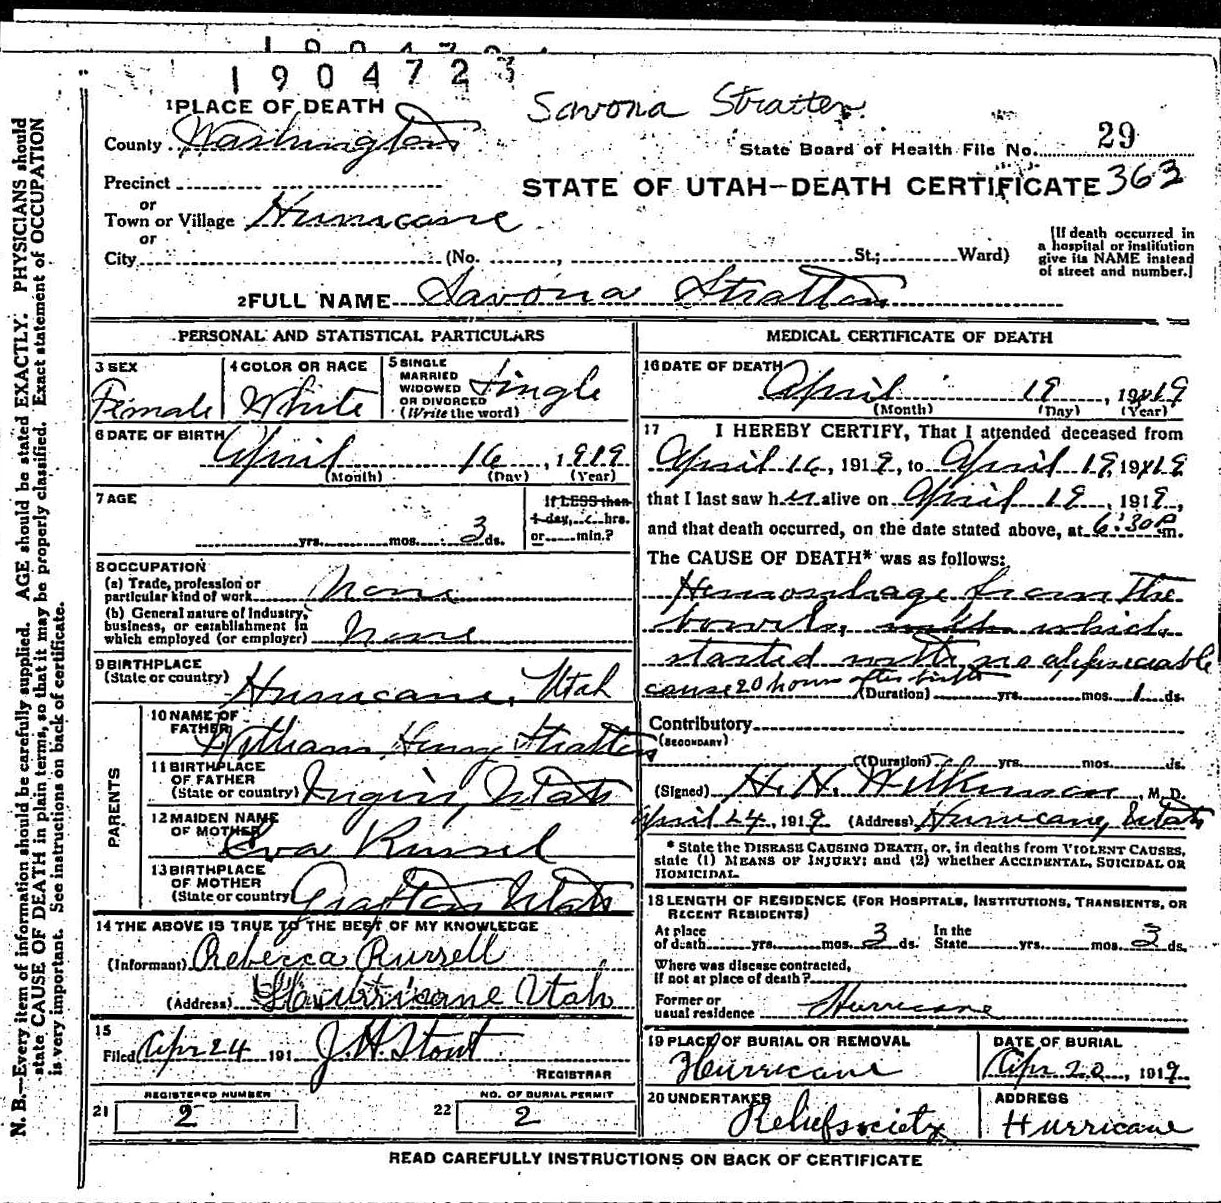 1904723
Savona Stratten
1 PLACE OF DEATH
County Washington
State Board of Health File No. 29
Precinct
STATE OF UTAH—DEATH CERTIFICATE 363
or
Town or Village Hurricane
or
City (No. , St.; Ward)
[If death occurred in
a hospital or institution
give its NAME instead
of street and number.]
2 FULL NAME Savona Stratton
PERSONAL AND STATISTICAL PARTICULARS
3 SEX
Female
4 COLOR OR RACE
White
5 SINGLE
MARRIED
WIDOWED
OR DIVORCED
(Write the word)
Single
6 DATE OF BIRTH
April 16, 1919
(Month) (Day) (Year)
7 AGE
yrs. mos. 3 ds.
If LESS than
1 day, hrs.
or min.?
8 OCCUPATION
(a) Trade, profession or
particular kind of work None
(b) General nature of Industry,
business, or establishment in
which employed (or employer) None
9 BIRTHPLACE
(State or country) Hurricane, Utah
PARENTS
10 NAME OF
FATHER William Henry Stratton
11 BIRTHPLACE
OF FATHER
(State or country) Virgin, Utah
12 MAIDEN NAME
OF MOTHER Eva Russel
13 BIRTHPLACE
OF MOTHER
(State or country) Grafton Utah
14 THE ABOVE IS TRUE TO THE BEST OF MY KNOWLEDGE
(Informant) Rebecca Russell
(Address) Hurricane Utah
15
Filed Apr 24 191 J.H. Stout
REGISTRAR
REGISTERED NUMBER
21 2
NO. OF BURIAL PERMIT
22 2
MEDICAL CERTIFICATE OF DEATH
16 DATE OF DEATH
April 19, 1919
(Month) (Day) (Year)
17 I HEREBY CERTIFY, That I attended deceased from
April 16, 1919, to April 19, 1919
that I last saw her alive on April 19, 1919,
and that death occurred, on the date stated above, at 6:30 P m.
The CAUSE OF DEATH* was as follows:
Hemorrhage from the
bowels, with which
started with no appreciable
cause 20 hours after birth (Duration) yrs. mos. 1 ds.
Contributory
(SECONDARY)
(Duration) yrs. mos. ds.
(Signed) H. N. Wilkinson, M.D.
April 24, 1919 (Address) Hurricane, Utah
* State the DISEASE CAUSING DEATH, or, in deaths from VIOLENT CAUSES,
state (1) MEANS OF INJURY; and (2) whether ACCIDENTAL, SUICIDAL OR
HOMICIDAL.
18 LENGTH OF RESIDENCE (FOR HOSPITALS, INSTITUTIONS, TRANSIENTS, OR
RECENT RESIDENTS)
At place In the
of death yrs. mos. 3 ds. State yrs. mos. 3 ds.
Where was disease contracted,
If not at place of death?
Former or
usual residence Hurricane
19 PLACE OF BURIAL OR REMOVAL
Hurricane
DATE OF BURIAL
Apr 20, 1919
20 UNDERTAKER
Relief society
ADDRESS
Hurricane
READ CAREFULLY INSTRUCTIONS ON BACK OF CERTIFICATE
N. B.—Every item of information should be carefully supplied. AGE should be stated EXACTLY. PHYSICIANS should
state CAUSE OF DEATH in plain terms, so that it may be properly classified. Exact statement of OCCUPATION
is very important. See instructions on back of certificate.